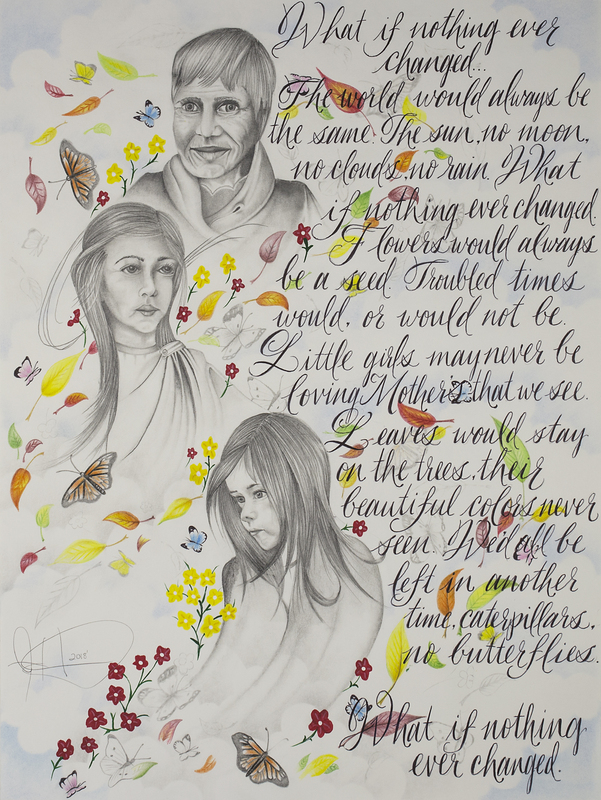 What if nothing ever
changed...
The world would always be
the same. The sun, no moon,
no clouds, no rain. What
if nothing ever changed.
Flowers would always
be a seed. Troubled times
would, or would not be.
Little girls may never be
loving Mothers that we see.
Leaves would stay
on the trees, their
beautiful colors never
seen. We'd all be
left in another
time, caterpillars,
no butterflies.
What if nothing
ever changed.